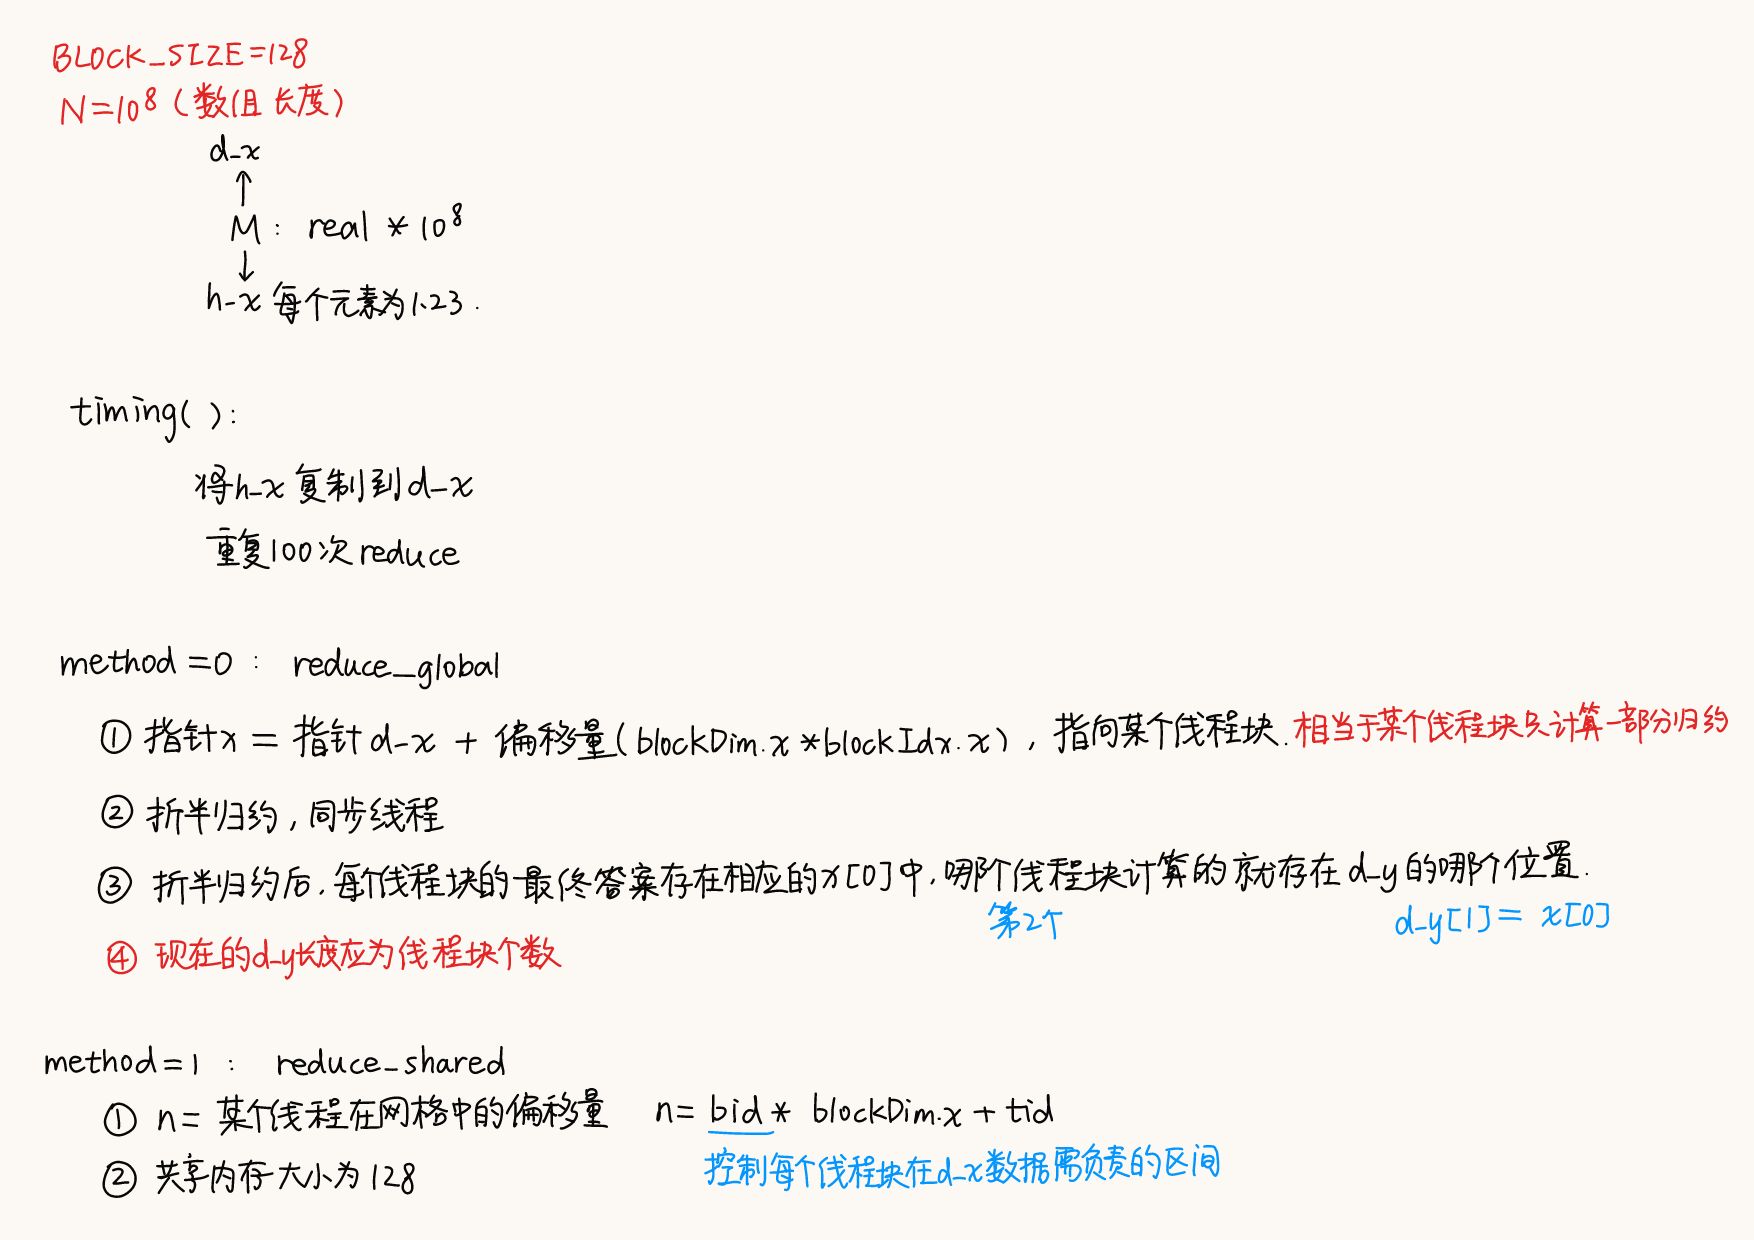 BLOCK_SIZE=128
N=10⁸(数组长度)
d_x
↑
M: real * 10⁸
↓
h_x 每个元素为1.23.
timing( ):
将h_x复制到d_x
重复100次reduce
method=0: reduce_global
① 指针x = 指针d_x + 偏移量(blockDim.x*blockIdx.x), 指向某个线程块. 相当于某个线程块只计算一部分归约
② 折半归约, 同步线程
③ 折半归约后, 每个线程块的最终答案存在相应的x[0]中, 哪个线程块计算的就存在d_y的哪个位置.
第2个 d_y[1]= x[0]
④ 现在的d_y长度应为线程块个数
method=1: reduce_shared
① n= 某个线程在网格中的偏移量 n= bid* blockDim.x + tid
控制每个线程块在d_x数据需负责的区间
② 共享内存大小为128